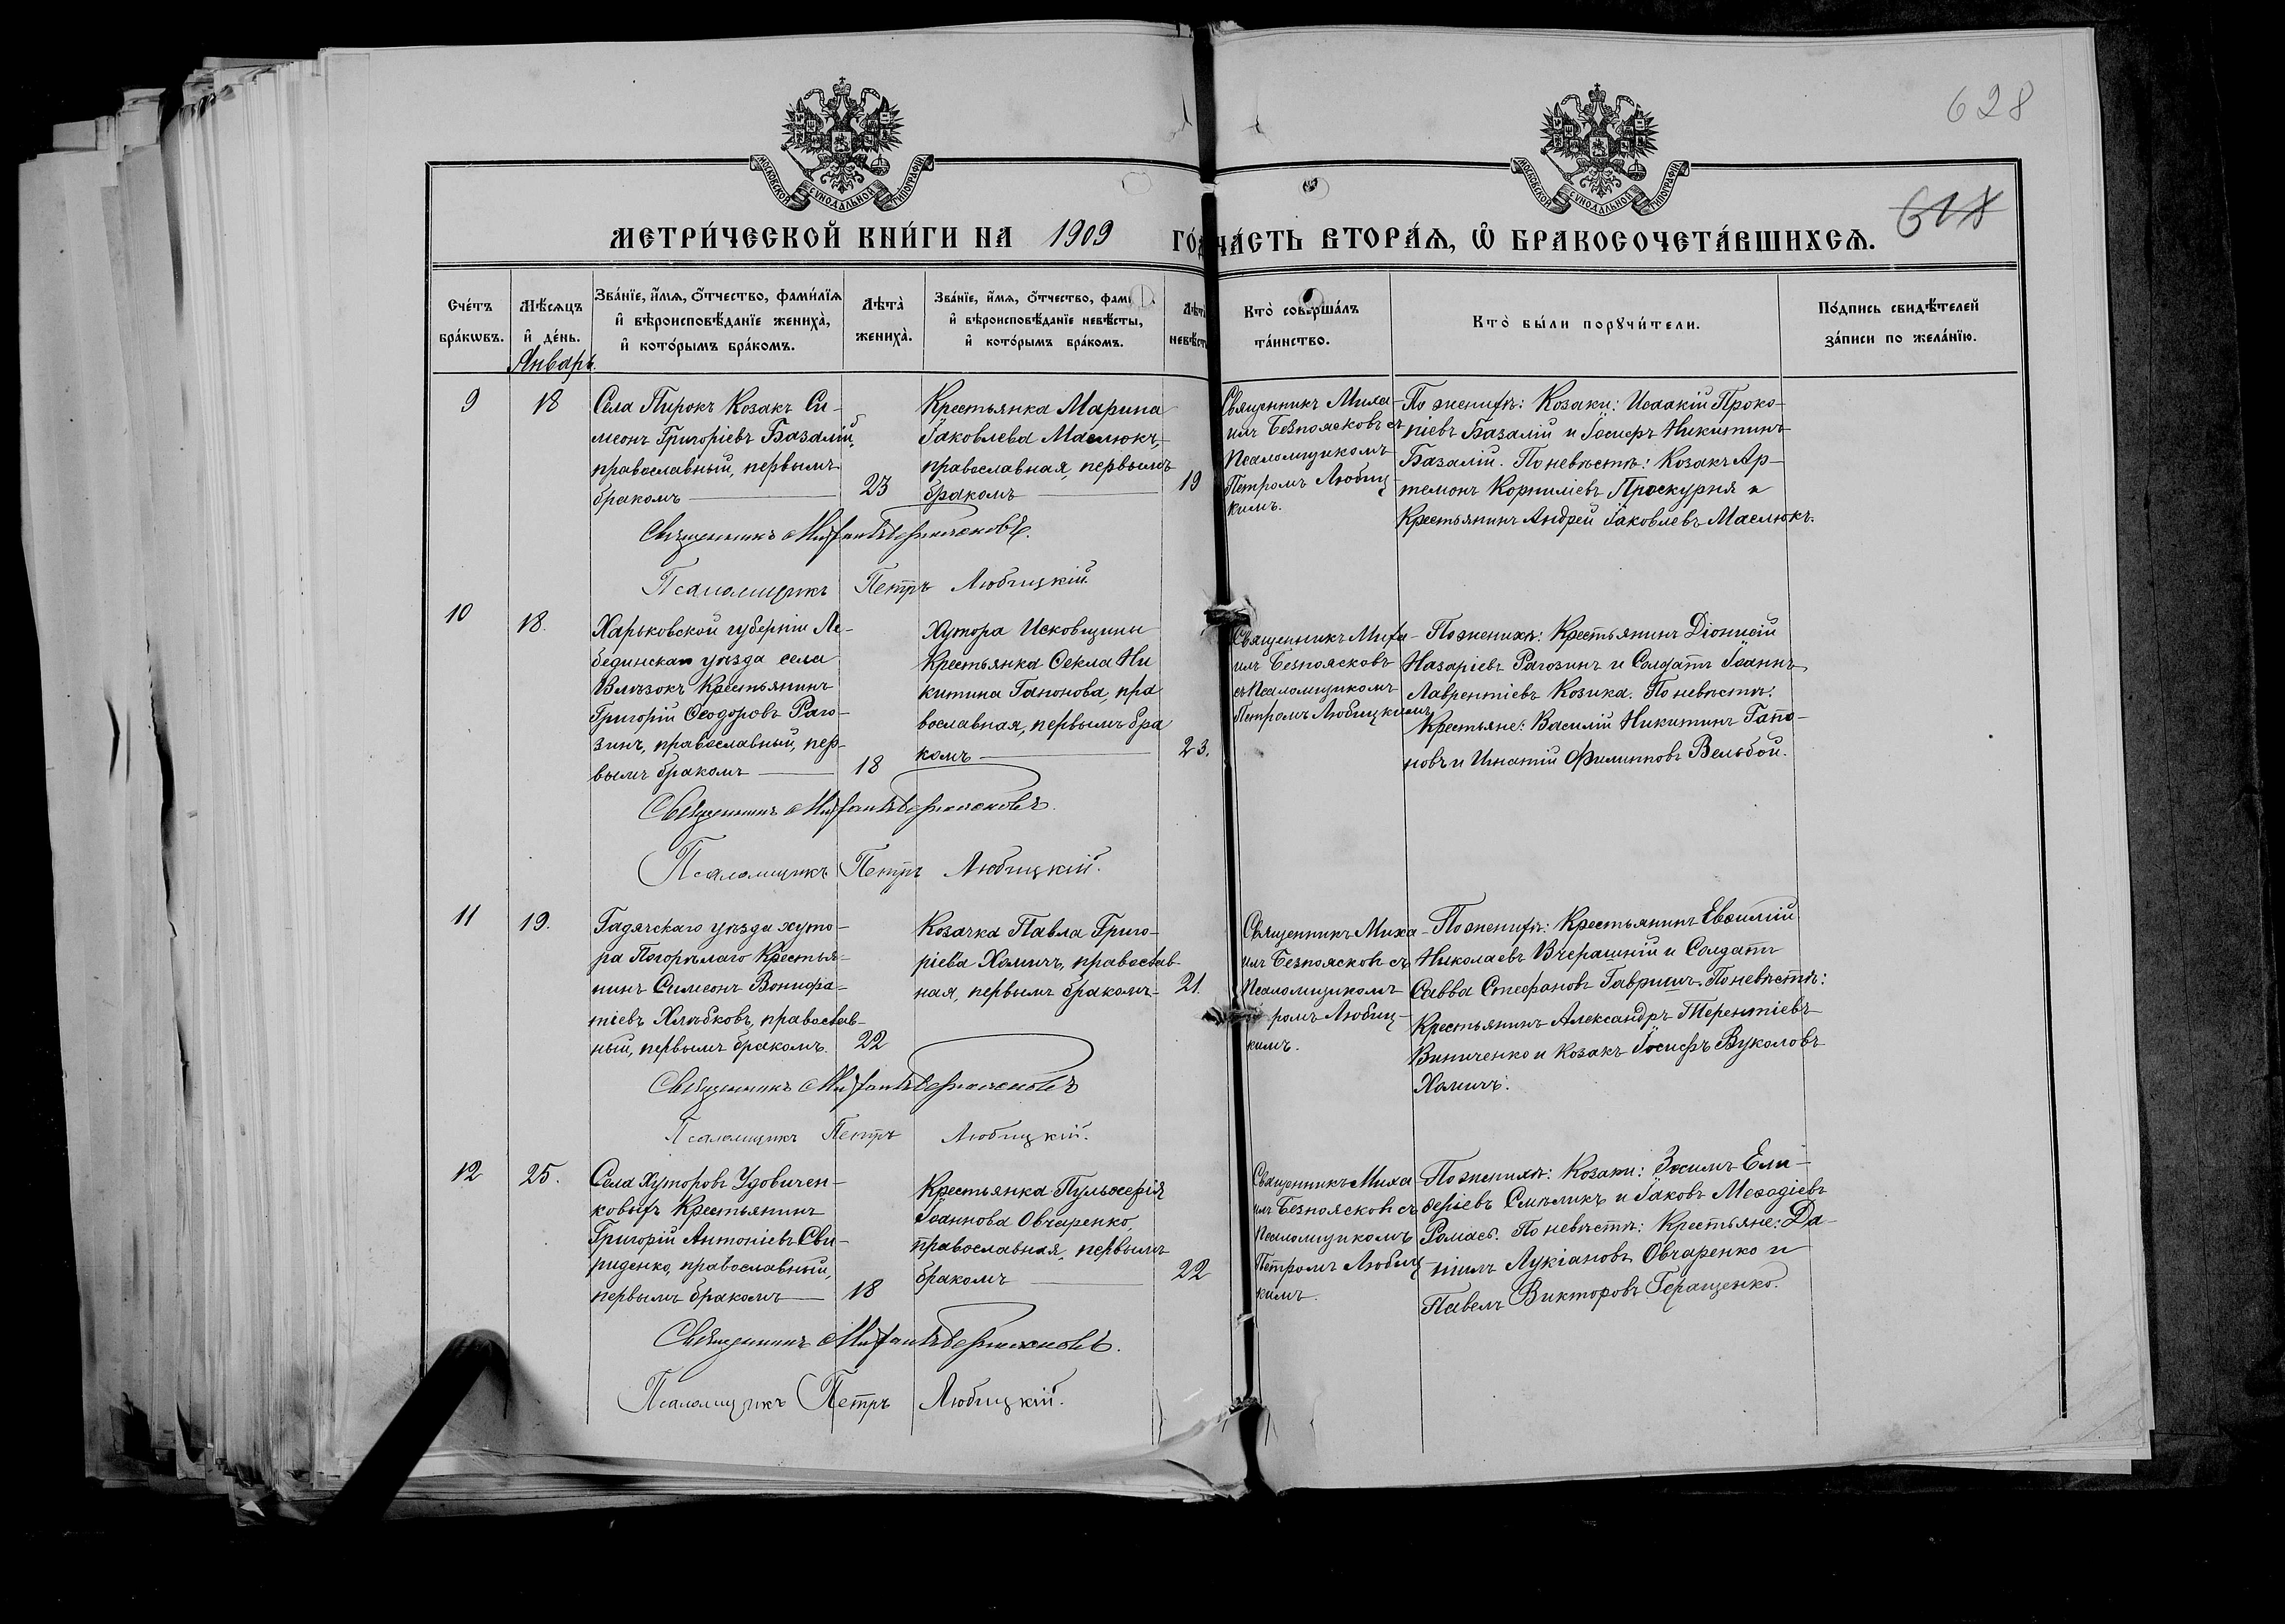 628
618
МОСКОВСКОЙ СѴНОДАЛЬНОЙ ТИПОГРАФІИ
МОСКОВСКОЙ СѴНОДАЛЬНОЙ ТИПОГРАФІИ
МЕТРИ́ЧЕСКОЙ КНИ́ГИ НА 1909 ГО́Д
ЧА́СТЬ ВТОРА́Ѧ, Ѽ БРАКОСОЧЕТА́ВШИХСѦ.
Сче́тъ бра́кѡвъ.
Мѣ́сѧцъ и҆ де́нь.
Январь.
Зва́нїе, и҆́мѧ, ѻ҆́тчество, фами́лїѧ и҆ вѣроисповѣ́данїе жениха̀, и҆ кото́рымъ бра́комъ.
Лѣта̀ жениха̀.
Зва́нїе, и҆́мѧ, ѻ҆́тчество, фами и҆ вѣроисповѣ́данїе невѣ́сты, и҆ кото́рымъ бра́комъ.
Лѣта̀ невѣст
Кто̀ соверша́лъ та́инство.
Кто̀ бы́ли порꙋчи́тели.
По́дпись свидѣ́телей за́писи по жела́нїю.
9
18
Села Пирокъ Козакъ Си-
меонъ Григоріевъ Базалій,
православный, первымъ
бракомъ
23
Крестьянка Марина
Іаковлева Маслюкъ,
православная, первымъ
бракомъ
19
Священникъ Миха-
илъ Безпоясковъ съ
Псаломщикомъ
Петромъ Любиц-
кимъ.
По женихѣ: Козаки: Исаакій Проко-
піевъ Базалій и Іосифъ Никитинъ
Базалій. По невѣстѣ: Козакъ Ар-
темонъ Корниліевъ Проскурня и
Крестьянинъ Андрей Іаковлевъ Маслюкъ.
Священникъ Михаилъ Безпоясковъ.
Псаломщикъ Петръ Любицкій.
10
18.
Харьковской губерніи Ле-
бединскаго уѣзда села
Влѣзокъ Крестьянинъ
Григорій Ѳеодоровъ Раго-
зинъ, православный, пер-
вымъ бракомъ
18
Хутора Исковщины
Крестьянка Ѳекла Ни
китина Гапонова, пра
вославная, первымъ бра
комъ
23.
Священникъ Миха-
илъ Безпоясковъ
съ Псаломщикомъ
Петромъ Любицкимъ
По женихѣ: Крестьянинъ Діонисій
Назаріевъ Рагозинъ и Солдатъ Іоаннъ
Лаврентіевъ Козика. По невѣстѣ:
Крестьяне: Василій Никитинъ Гапо-
новъ и Игнатій Филипповъ Вельбой.
Священникъ Михаилъ Безпоясковъ.
Псаломщикъ Петръ Любицкій.
11
19.
Гадячскаго уѣзда хуто-
ра Погорѣлаго Крестья-
нинъ Симеонъ Вонифа-
тіевъ Хлѣбковъ, православ-
ный, первымъ бракомъ.
22
Козачка Павла Григо-
ріева Хомичъ, православ-
ная, первымъ бракомъ
21.
Священникъ Миха-
илъ Безпоясковъ съ
Псаломщикомъ
ромъ Любиц-
кимъ.
По женихѣ: Крестьянинъ Евсимій
Николаевъ Вчерашній и Солдатъ
Савва Стефановъ Гавришъ. По невѣстѣ:
Крестьянинъ Александръ Терентіевъ
Виниченко и Козакъ Іосифъ Вуколовъ
Хомичъ.
Священникъ Михаилъ Безпоясковъ
Псаломщикъ Петръ Любицкій.
12
25.
Села Хуторовъ Удовичен-
ковыхъ Крестьянинъ
Григорій Антоніевъ Сви-
риденко, православный,
первымъ бракомъ
18
Крестьянка Пульхерія
Іоаннова Овчаренко,
православная, первымъ
бракомъ
22
Священникъ Миха
илъ Безпоясковъ съ
Псаломщикомъ
Петромъ Любиц
кимъ.
По женихѣ: Козаки: Зосимъ Ели-
ферієвъ Смѣликъ и Іаковъ Меѳодіевъ
Ромасъ. По невѣстѣ: Крестьяне: Да-
ніилъ Лукіановъ Овчаренко и
Павелъ Викторовъ Геращенко.
Священникъ Михаилъ Безпоясковъ.
Псаломщикъ Петръ Любицкій.